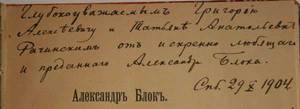 Глубокоуважаемым Григорiю
Алексѣевичу и Татьянѣ Анатольевнѣ
Рачинскимъ отъ искренно любящаго
и преданнаго Александра Блока.
Спб. 29 X 1904.
Александръ Блокъ.